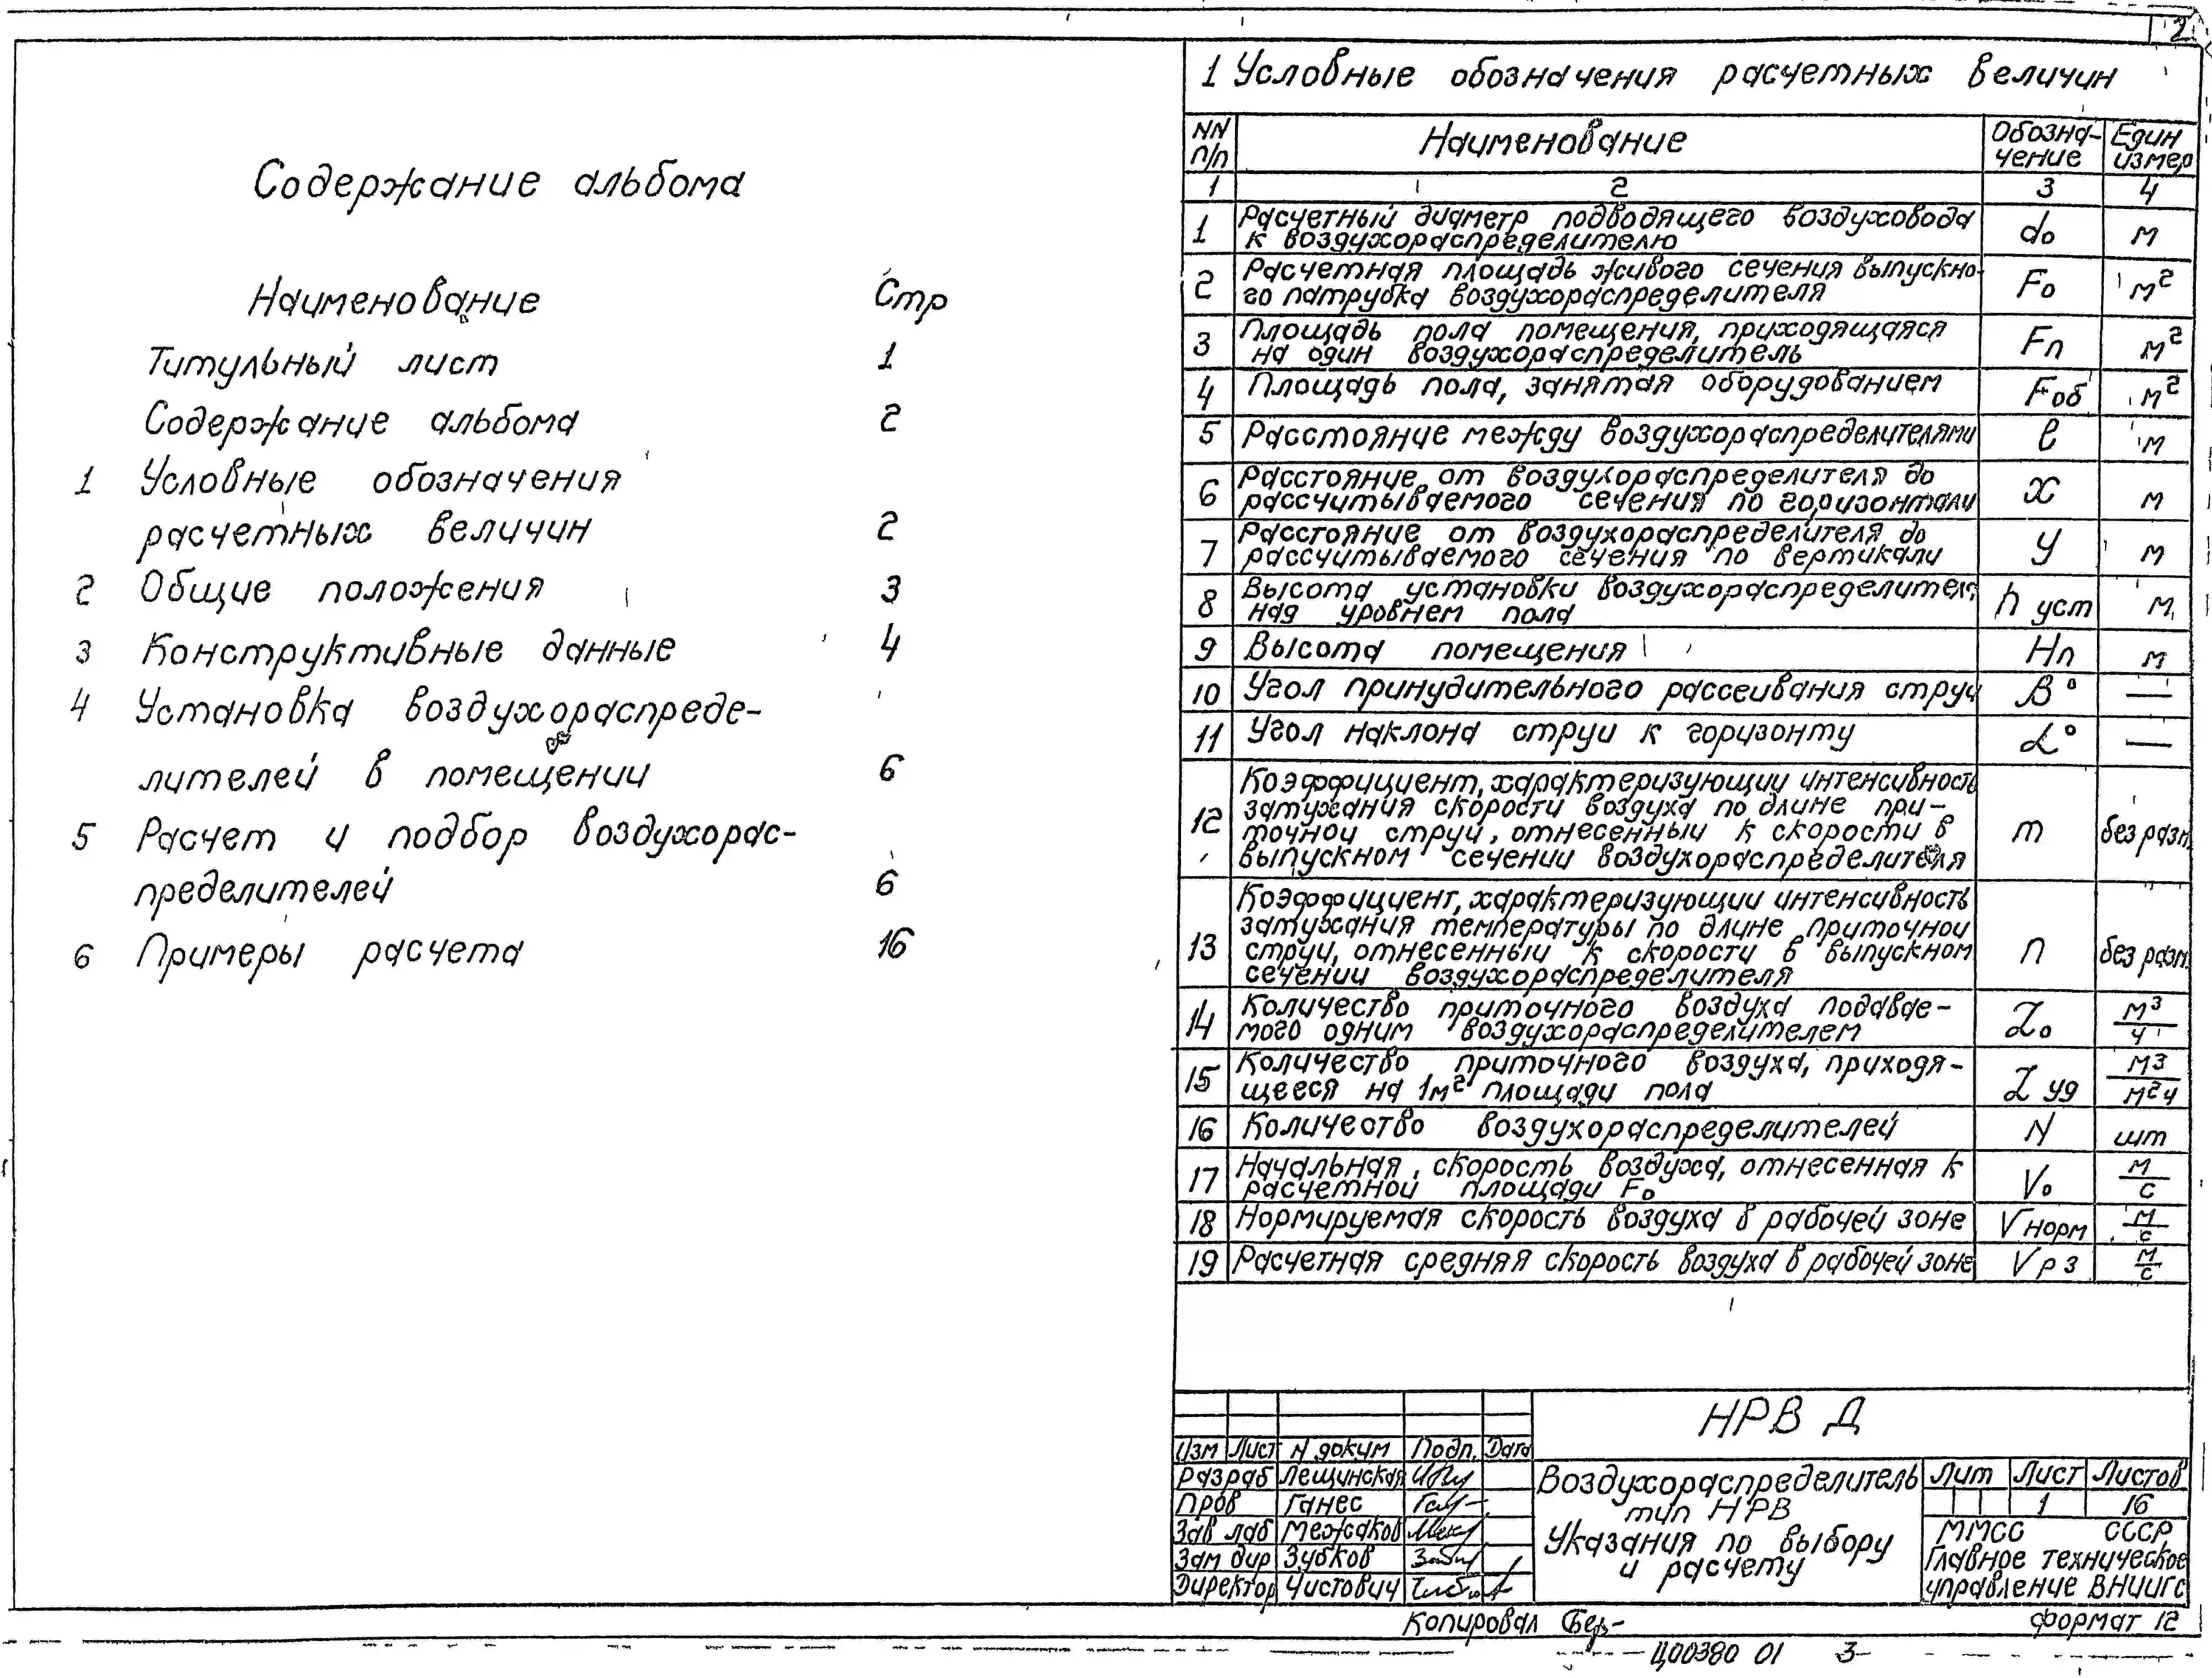 2
Содержание альбома
Наименование Стр
Титульный лист 1
Содержание альбома 2
1 Условные обозначения
расчетных величин 2
2 Общие положения 3
3 Конструктивные данные 4
4 Установка воздухораспреде-
лителей в помещении 6
5 Расчет и подбор воздухорас-
пределителей 6
6 Примеры расчета 16
1 Условные обозначения расчетных величин
NN Наименование Обозна- Един
п/п чение измер
1 2 3 4
Расчетный диаметр подводящего воздуховода
1 к воздухораспределителю do м
Расчетная площадь живого сечения выпускно-
2 го патрубка воздухораспределителя Fo м²
Площадь пола помещения, приходящаяся
3 на один воздухораспределитель Fп м²
4 Площадь пола, занятая оборудованием Fоб м²
5 Расстояние между воздухораспределителями ℓ м
Расстояние от воздухораспределителя до
6 рассчитываемого сечения по горизонтали x м
Расстояние от воздухораспределителя до
7 рассчитываемого сечения по вертикали y м
Высота установки воздухораспределител
8 над уровнем пола h уст м
9 Высота помещения Hп м
10 Угол принудительного рассеивания струи β° —
11 Угол наклона струи к горизонту α° —
Коэффициент, характеризующий интенсивность
затухания скорости воздуха по длине при-
12 точной струи, отнесенный к скорости в m без разм.
выпускном сечении воздухораспределителя
Коэффициент, характеризующий интенсивность
затухания температуры по длине приточной
13 струи, отнесенный к скорости в выпускном n без разм.
сечении воздухораспределителя
Количество приточного воздуха подавае-
14 мого одним воздухораспределителем Lo м³/ч
Количество приточного воздуха, приходя-
15 щееся на 1м² площади пола L уд м³/м²ч
16 Количество воздухораспределителей N шт
Начальная скорость воздуха, отнесенная к
17 расчетной площади Fo Vo м/с
18 Нормируемая скорость воздуха в рабочей зоне Vнорм м/с
19 Расчетная средняя скорость воздуха в рабочей зоне Vрз м/с
НРВ Д
Изм Лист N докум Подп. Дата
Разраб Лещинская
Пров Ганес
Зав лаб Межаков
Зам дир Зубков
Директор Чистович
Воздухораспределитель
тип НРВ
Указания по выбору
и расчету
Лит Лист Листов
1 16
ММСС СССР
Главное техническое
управление ВНИИГС
Копировал
Формат 12
Ц00380 01 3